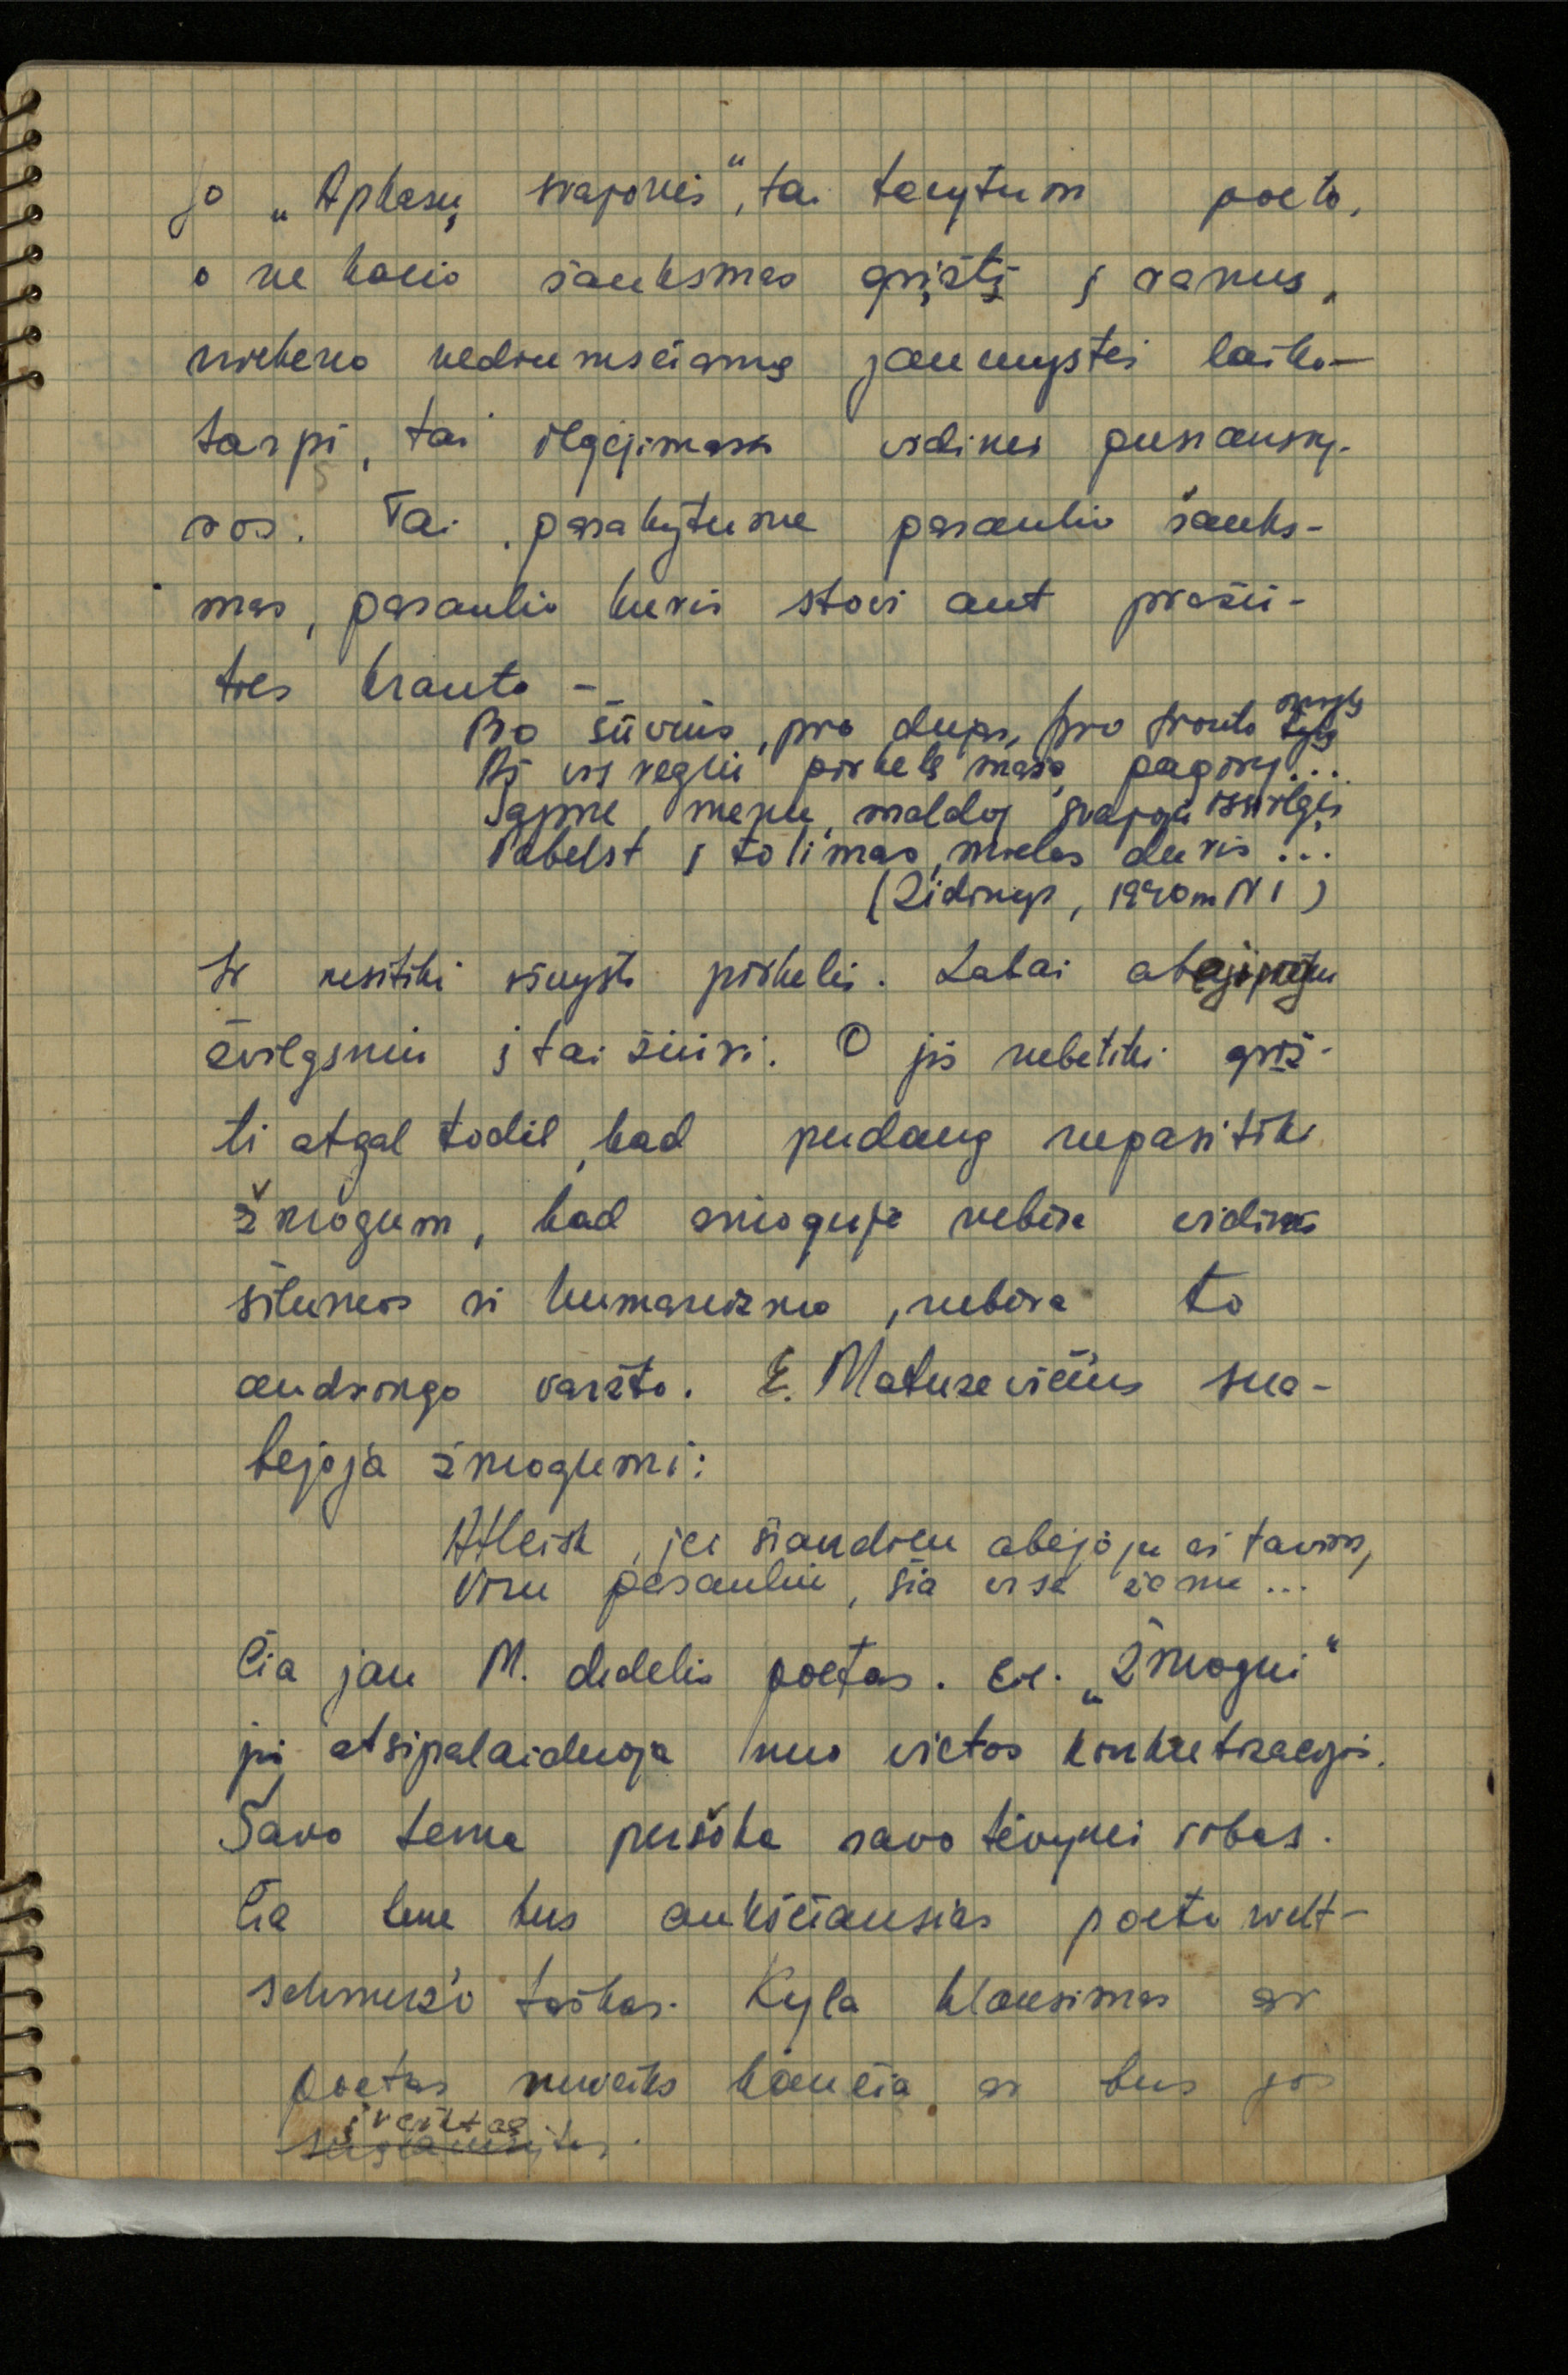 jo „Apkasų svajonės“, tai tarytum poeto,
o ne kario šauksmas grįžti į ramus,
niekeno nedrumsčiamą jaunystės laiko-
tarpį, tai ilgėjimasis vidinės pusiausvy-
ros. Tai pasakytume pasaulio šauks-
mas, pasaulio kuris stovi ant pražū-
ties kranto –
Pro šūvius, pro dūmus, pro fronto tylą
Aš vis regiu pirkelę mano pagiry...
Sapne, menu, maldoj svajoju išsiilgęs
Pabelst į tolimas, mielas duris...
(Židinys, 1940 m N 1)
Ir nesitiki išvysti pirkelės. Labai
žvilgsniu į tai žiūri. O jis nebetiki grįž-
ti atgal todėl, kad pudaug nepasitiki
žmogum, kad žmoguje nebėra vidinės
šilumos ir humanizmo, nebėra to
audringo varžto. E. Matuzevičius sua-
bejoja žmogumi:
Atleisk, jei šiandien abejoju aš tavim,
Visu pasauliu, šia visa žeme...
Čia jau M. didelis poetas. Eil. „Žmogui“
jis atsipalaiduoja nuo vietos konkretizacijos.
Savo tema peršoka savo tėvynės ribas.
Čia bene bus aukščiausias poeto welt-
schmerz'o taškas. Kyla klausimas ar
poetas nuveiks kančią ar bus jos
įveiktas